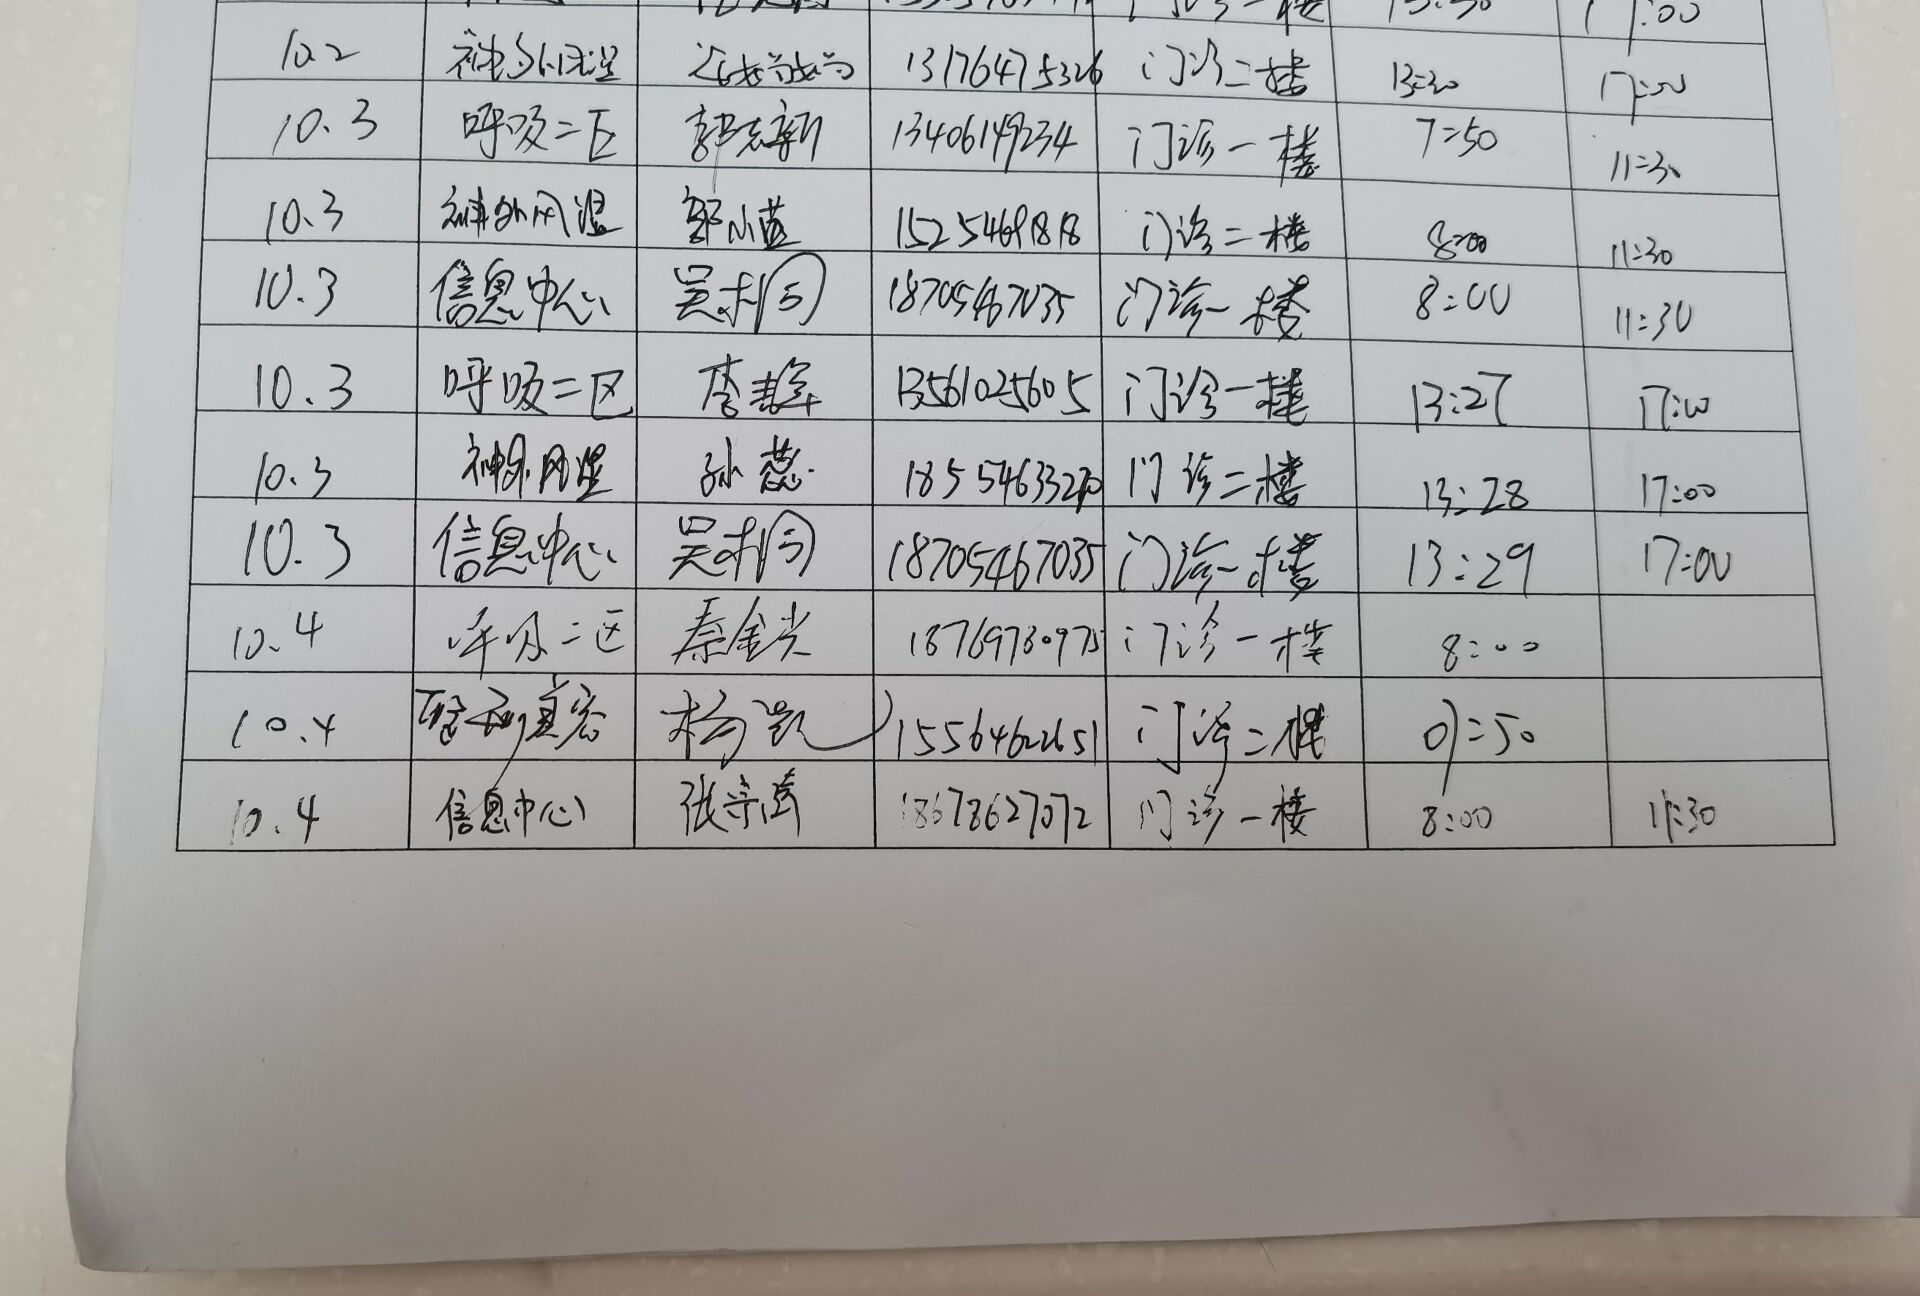 17:00
10.2 13176475326 门诊二楼 13:30 17:00
10.3 呼吸二区 郭志新 13406149234 门诊一楼 7:50 11:30
10.3 神外风湿 邹小蓝 15254691818 门诊二楼 8:00 11:30
10.3 信息中心 吴树同 18705467035 门诊一楼 8:00 11:30
10.3 呼吸二区 李 13561025605 门诊一楼 13:27 17:00
10.3 神外风湿 孙蕊 门诊二楼 13:28 17:00
10.3 信息中心 吴树同 18705467035 门诊一楼 13:29 17:00
10.4 呼吸二区 秦金光 18769780975 门诊一楼 8:00
10.4 杨凯 15564622651 门诊二楼 07:50
10.4 信息中心 张 18678627072 门诊一楼 8:00 11:30